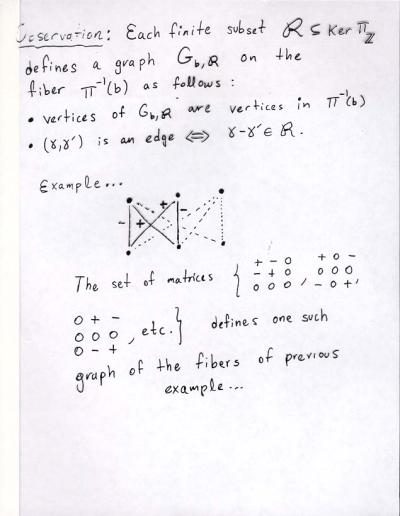 Observation: Each finite subset R ⊆ Ker π_Z
defines a graph G_b,R on the
fiber π⁻¹(b) as follows:
• vertices of G_b,R are vertices in π⁻¹(b)
• (γ,γ') is an edge ⟺ γ-γ' ∈ R.
Example...
- + + -
The set of matrices { + - 0 + 0 -
- + 0 0 0 0
0 0 0 , - 0 + ,
0 + -
0 0 0 , etc. } defines one such
0 - +
graph of the fibers of previous
example...